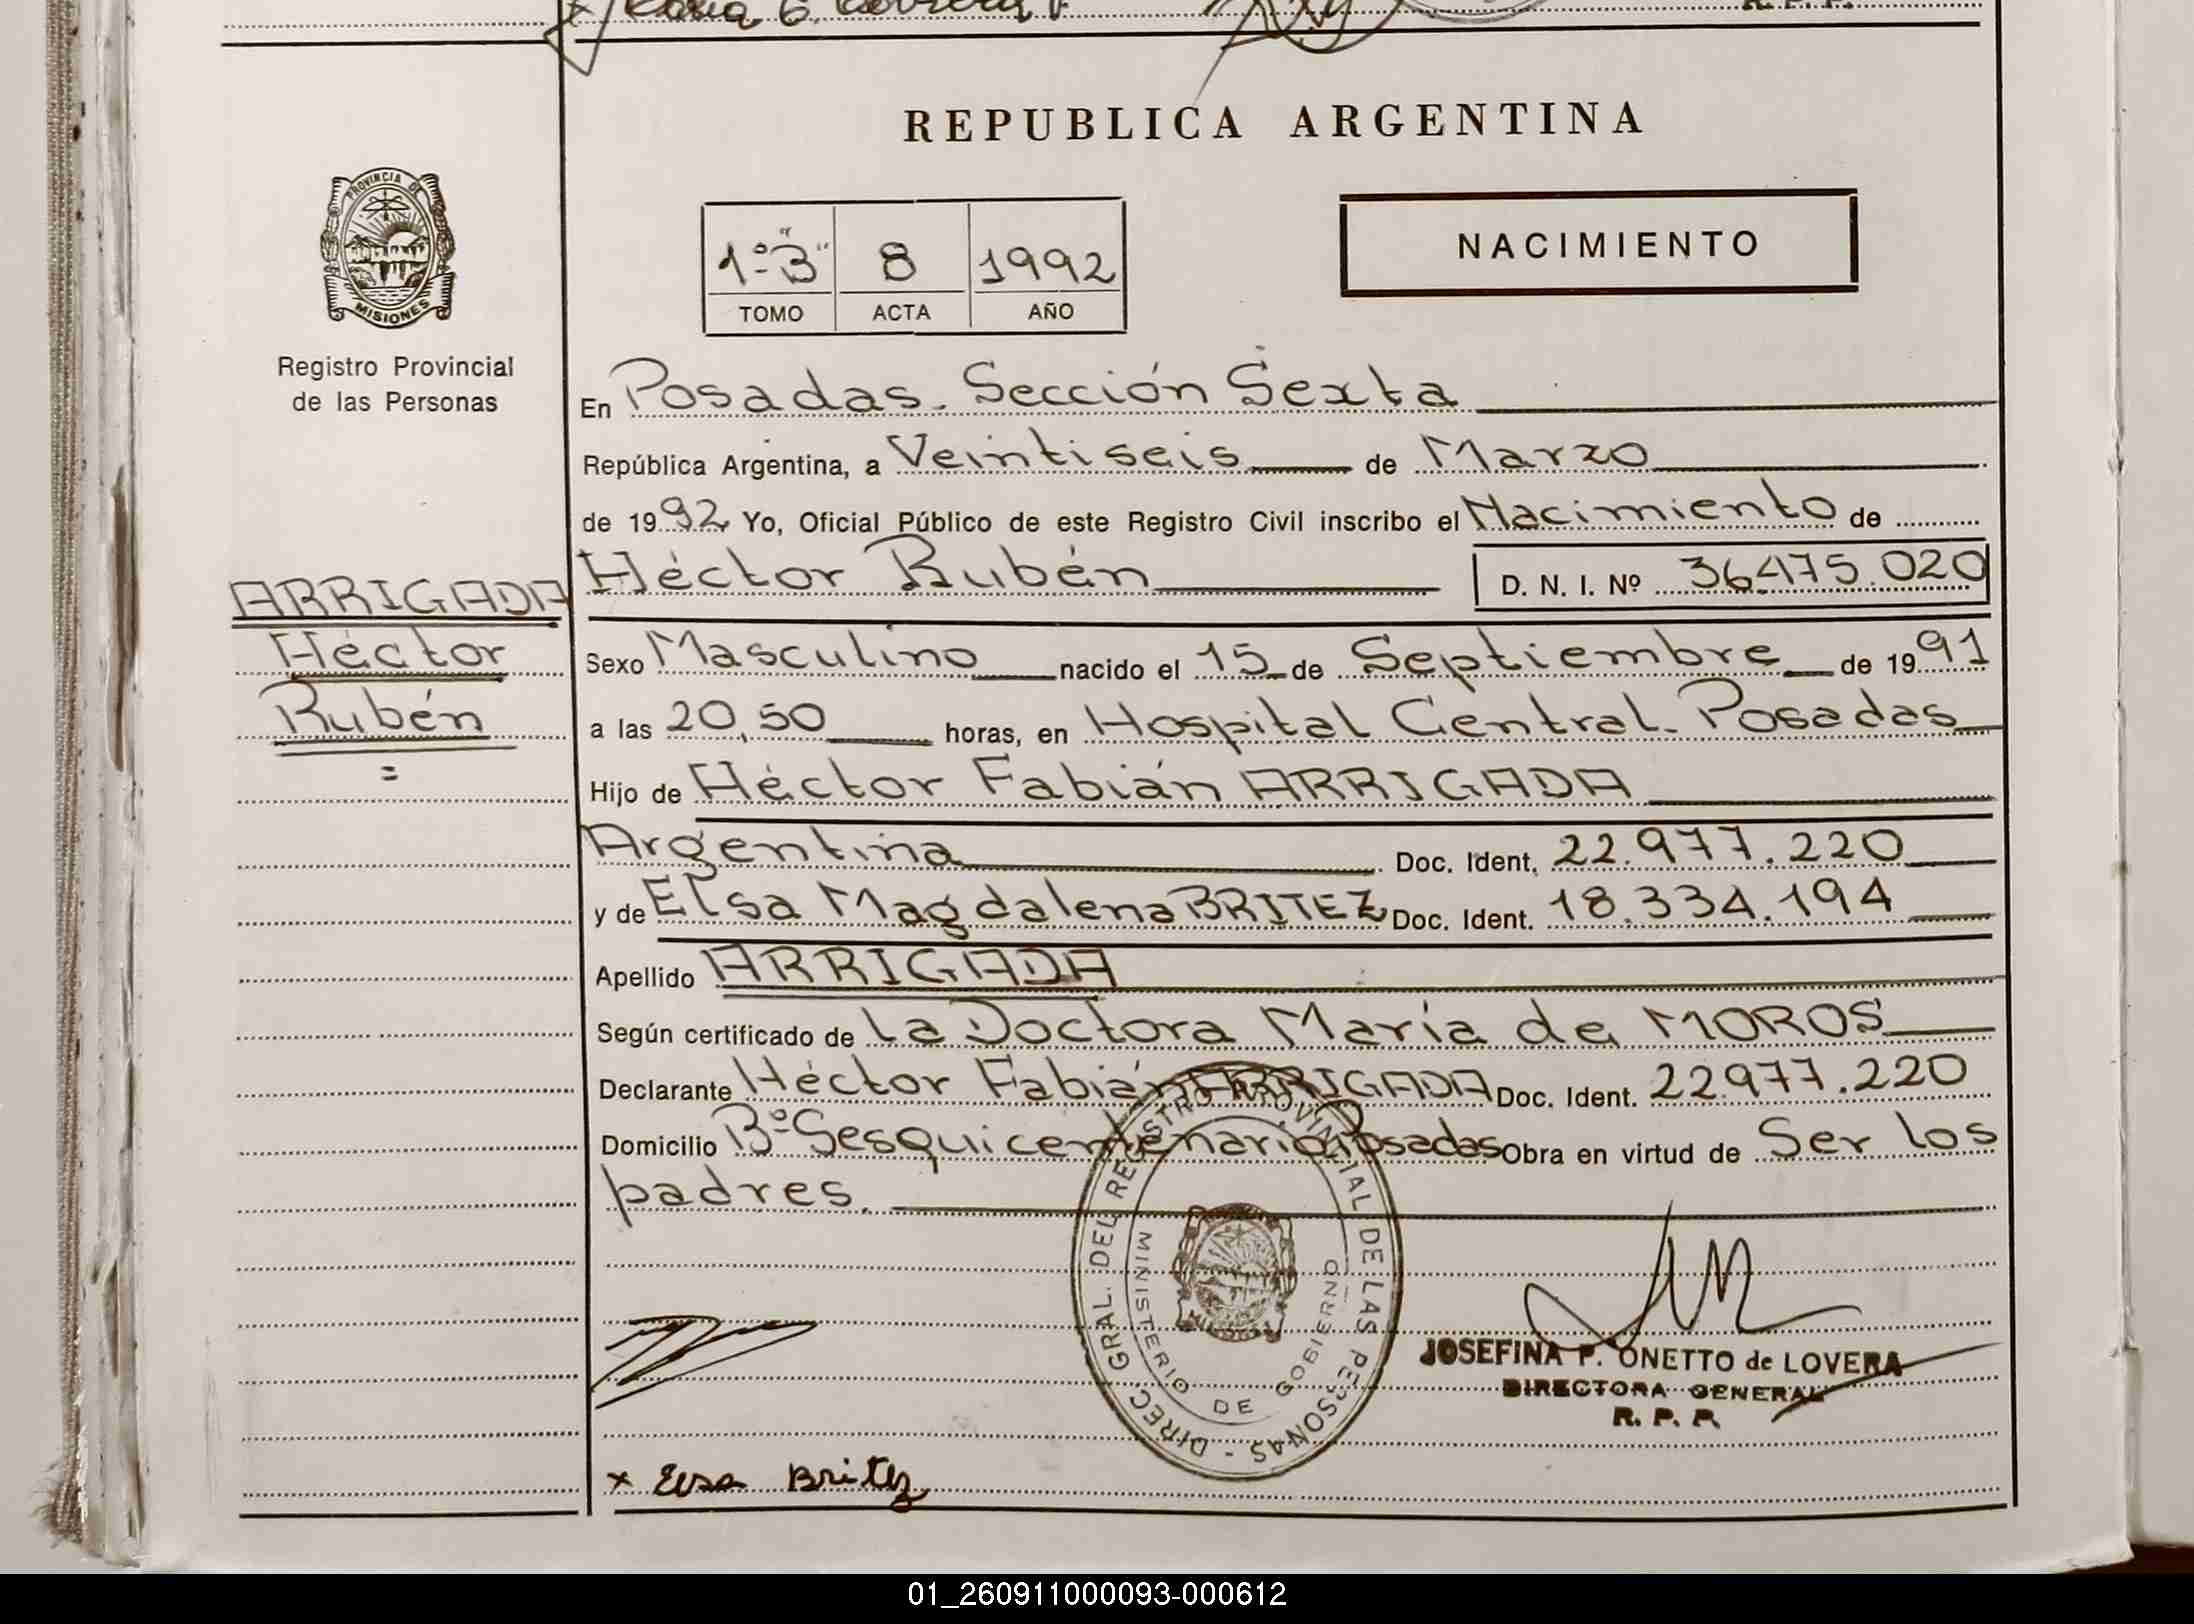 R. P. P.
REPUBLICA ARGENTINA
PROVINCIA DE
MISIONES
Registro Provincial
de las Personas
1º "B" 8 1992
TOMO ACTA AÑO
NACIMIENTO
En Posadas. Sección Sexta
República Argentina, a Veintiseis de Marzo
de 1992 Yo, Oficial Público de este Registro Civil inscribo el Nacimiento de
Héctor Rubén D. N. I. Nº 36.475.020
ARRIGADA
Héctor
Rubén
Sexo Masculino nacido el 15 de Septiembre de 1991
a las 20,50 horas, en Hospital Central. Posadas
Hijo de Héctor Fabián ARRIGADA
Argentina Doc. Ident. 22.977.220
y de Elsa Magdalena BRITEZ Doc. Ident. 18.334.194
Apellido ARRIGADA
Según certificado de la Doctora María de MOROS
Declarante Héctor Fabián ARRIGADA Doc. Ident. 22.977.220
Domicilio Bº Sesquicentenario Posadas Obra en virtud de Ser los
padres.
DIREC. GRAL. DEL REGISTRO PROVINCIAL DE LAS PERSONAS -
MINISTERIO DE GOBIERNO
JOSEFINA P. ONETTO de LOVERA
DIRECTORA GENERAL
R. P. P.
x Elsa Britez
01_260911000093-000612